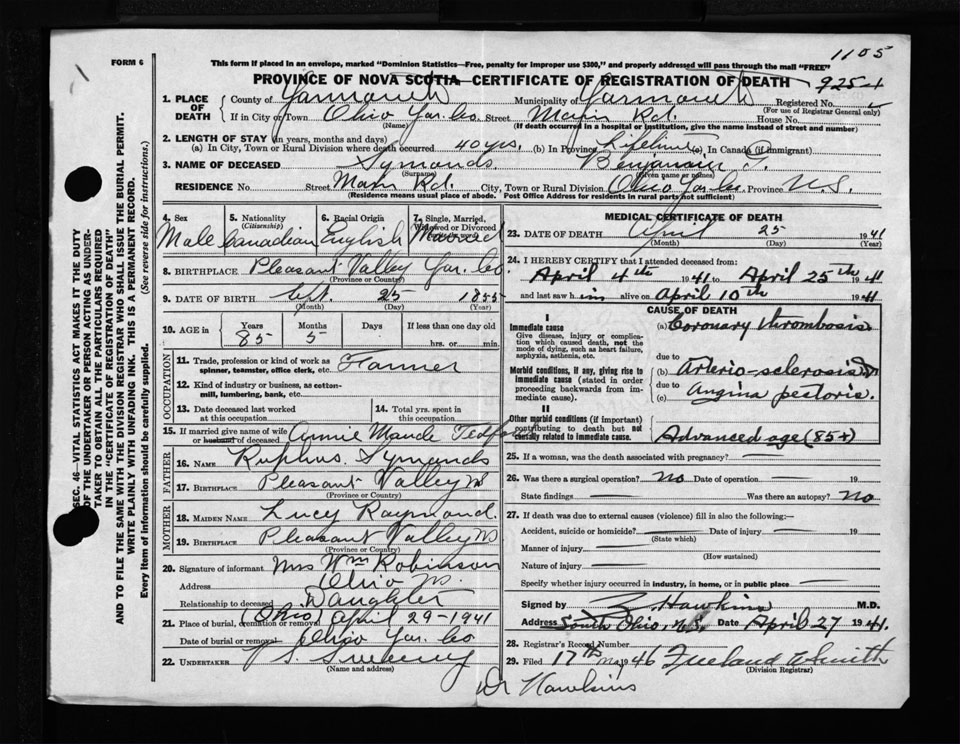 1105
FORM 6
This form if placed in an envelope, marked "Dominion Statistics—Free, penalty for improper use $300," and properly addressed will pass through the mail "FREE"
PROVINCE OF NOVA SCOTIA—CERTIFICATE OF REGISTRATION OF DEATH
9254
1. PLACE OF DEATH County of Yarmouth Municipality of Yarmouth Registered No.
(For use of Registrar General only)
If in City or Town Ohio Yar. Co. Street Main Rd. House No.
(Name) (If death occurred in a hospital or institution, give the name instead of street and number)
2. LENGTH OF STAY (in years, months and days)
(a) In City, Town or Rural Division where death occurred 40 yrs. (b) In Province Lifetime (c) In Canada (if immigrant)
3. NAME OF DECEASED Symonds Benjamin
(Surname) (Given name or names)
RESIDENCE No. Street Main Rd. City, Town or Rural Division Ohio Yar. Co. Province N.S.
(Residence means usual place of abode. Post Office Address for residents in rural parts not sufficient)
4. Sex Male
5. Nationality (Citizenship) Canadian
6. Racial Origin English
7. Single, Married, Widowed or Divorced Married
8. BIRTHPLACE Pleasant Valley Yar. Co.
(Province or County)
9. DATE OF BIRTH Sept. 25 1855
(Month) (Day) (Year)
10. AGE in Years 85 Months 5 Days If less than one day old hrs. or min.
OCCUPATION
11. Trade, profession or kind of work as spinner, teamster, office clerk, etc. Farmer
12. Kind of industry or business, as cotton-mill, lumbering, bank, etc.
13. Date deceased last worked at this occupation
14. Total yrs. spent in this occupation
15. If married give name of wife or husband of deceased Annie Maude Tedford
FATHER
16. NAME Ruphus Symonds
17. BIRTHPLACE Pleasant Valley NS
(Province or Country)
MOTHER
18. MAIDEN NAME Lucy Raymond.
19. BIRTHPLACE Pleasant Valley NS
(Province or Country)
20. Signature of informant Mrs Wm Robinson
Address Ohio NS.
Relationship to deceased Daughter
21. Place of burial, cremation or removal (Ohio) April 29-1941
Date of burial or removal Ohio Yar. Co
22. UNDERTAKER V. S. Sweeny
(Name and address)
MEDICAL CERTIFICATE OF DEATH
23. DATE OF DEATH April 25 1941
(Month) (Day) (Year)
24. I HEREBY CERTIFY that I attended deceased from:
April 4th 1941 to April 25th 1941
and last saw him alive on April 10th 1941
CAUSE OF DEATH
I
Immediate cause
Give disease, injury or complication which caused death, not the mode of dying, such as heart failure, asphyxia, asthenia, etc.
(a) Coronary thrombosis
due to
Morbid conditions, if any, giving rise to immediate cause (stated in order proceeding backwards from immediate cause).
(b) Arterio-sclerosis
due to
(c) Angina pectoris.
II
Other morbid conditions (if important) contributing to death but not causally related to immediate cause.
Advanced age (85+)
25. If a woman, was the death associated with pregnancy?
26. Was there a surgical operation? no Date of operation 19
State findings Was there an autopsy? no
27. If death was due to external causes (violence) fill in also the following:—
Accident, suicide or homicide? Date of injury 19
(State which)
Manner of injury
(How sustained)
Nature of injury
Specify whether injury occurred in industry, in home, or in public place
Signed by Z. Hawkins M.D.
Address South Ohio, N.S. Date April 27 1941.
28. Registrar's Record Number
29. Filed 17th 1946 Freeland W Smith
(Division Registrar)
Dr Hawkins
SEC. 46—VITAL STATISTICS ACT MAKES IT THE DUTY
OF THE UNDERTAKER OR PERSON ACTING AS UNDER-
TAKER TO OBTAIN ALL THE PARTICULARS REQUIRED
IN THE "CERTIFICATE OF REGISTRATION OF DEATH"
AND TO FILE THE SAME WITH THE DIVISION REGISTRAR WHO SHALL ISSUE THE BURIAL PERMIT.
WRITE PLAINLY WITH UNFADING INK. THIS IS A PERMANENT RECORD.
Every item of information should be carefully supplied. (See reverse side for instructions.)